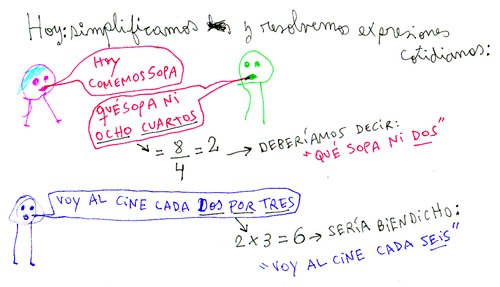 Hoy: simplificamos y resolvemos expresiones
cotidianas:
HOY
COMEMOS SOPA
QUÉ SOPA NI
OCHO CUARTOS
= 8/4 = 2 → DEBERÍAMOS DECIR:
"QUÉ SOPA NI DOS"
VOY AL CINE CADA DOS POR TRES
2 x 3 = 6 → SERÍA BIEN DICHO:
"VOY AL CINE CADA SEIS"